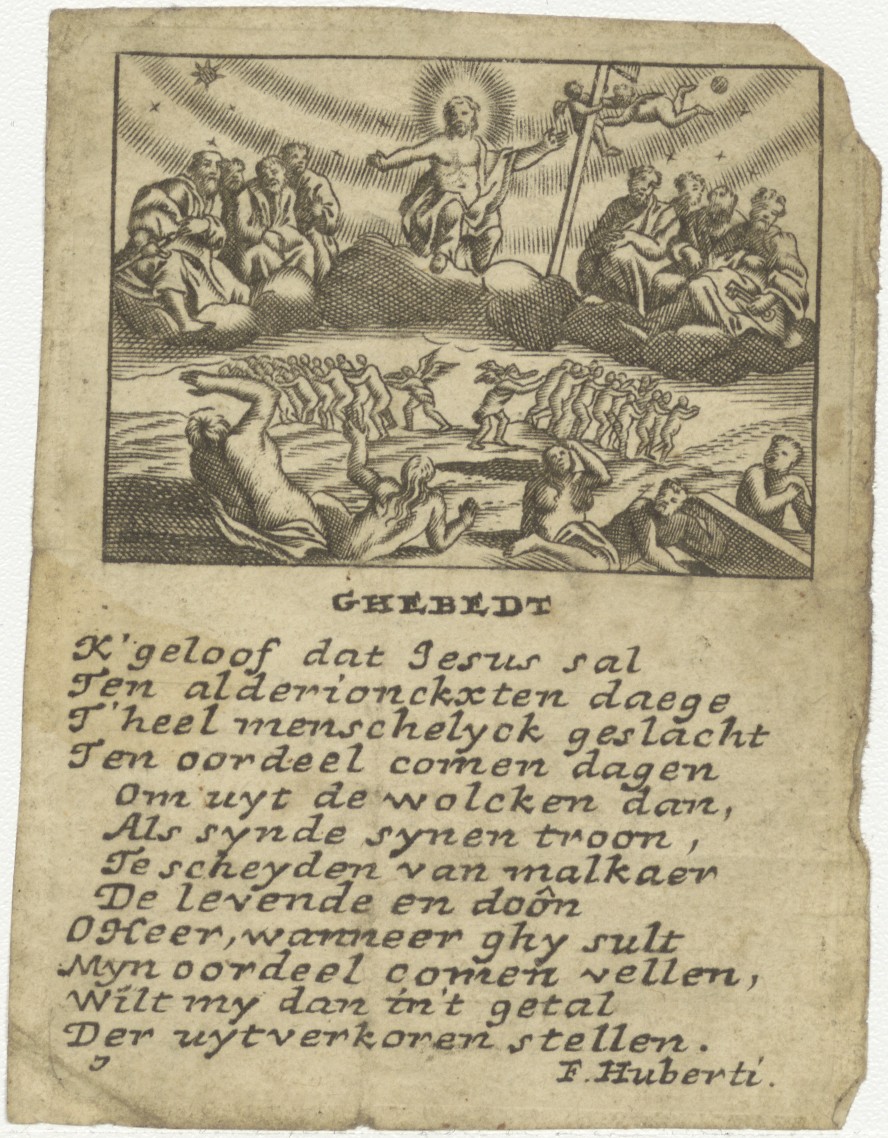 GHEBEDT
K'geloof dat Jesus sal
Ten alderionckxten daege
T'heel menschelyck geslacht
Ten oordeel comen dagen
Om uyt de wolcken dan,
Als synde synen troon,
Te scheyden van malkaer
De levende en doôn
O Heer, wanneer ghy sult
Myn oordeel comen vellen,
Wilt my dan in't getal
Der uytverkoren stellen.
F. Huberti.